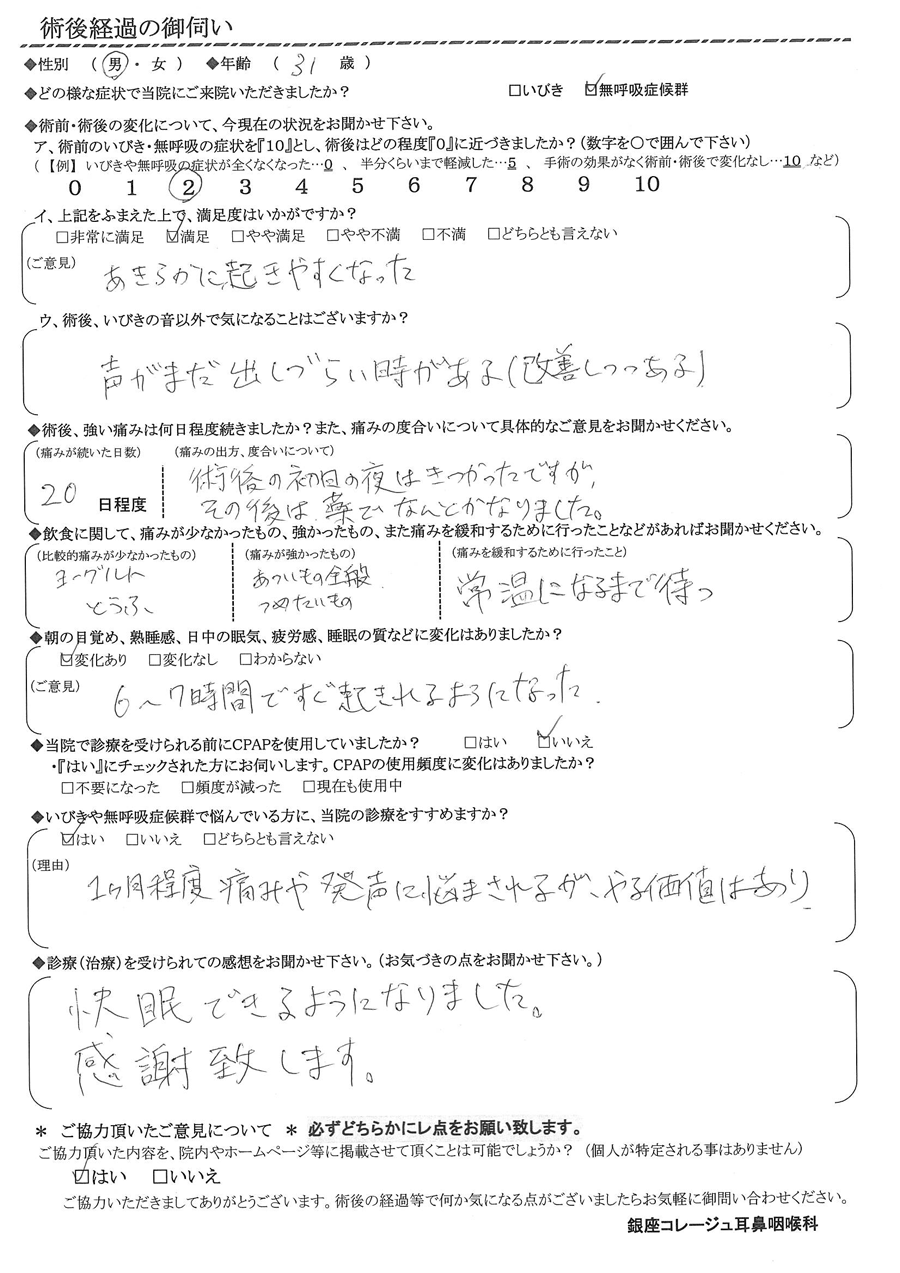 術後経過の御伺い
◆性別 （ 男 ・ 女 ） ◆年齢 （ 31 歳 ）
◆どの様な症状で当院にご来院いただきましたか？ □いびき ☑無呼吸症候群
◆術前・術後の変化について、今現在の状況をお聞かせ下さい。
ア、術前のいびき・無呼吸の症状を『10』とし、術後はどの程度『0』に近づきましたか？（数字を○で囲んで下さい）
（【例】いびきや無呼吸の症状が全くなくなった…0 、 半分くらいまで軽減した…5 、 手術の効果がなく術前・術後で変化なし…10 など）
0 1 2 3 4 5 6 7 8 9 10
イ、上記をふまえた上で、満足度はいかがですか？
□非常に満足 ☑満足 □やや満足 □やや不満 □不満 □どちらとも言えない
（ご意見） あきらかに起きやすくなった
ウ、術後、いびきの音以外で気になることはございますか？
声がまだ出しづらい時がある（改善しつつある）
◆術後、強い痛みは何日程度続きましたか？また、痛みの度合いについて具体的なご意見をお聞かせください。
（痛みが続いた日数） （痛みの出方、度合いについて）
20 日程度 術後の初日の夜はきつかったですが、
その後は、薬でなんとかなりました。
◆飲食に関して、痛みが少なかったもの、強かったもの、また痛みを緩和するために行ったことなどがあればお聞かせください。
（比較的痛みが少なかったもの） （痛みが強かったもの） （痛みを緩和するために行ったこと）
ヨーグルト あついもの全般 常温になるまで待つ
とうふ つめたいもの
◆朝の目覚め、熟睡感、日中の眠気、疲労感、睡眠の質などに変化はありましたか？
☑変化あり □変化なし □わからない
（ご意見） 6～7時間ですぐ起きれるようになった.
◆当院で診療を受けられる前にCPAPを使用していましたか？ □はい ☑いいえ
・『はい』にチェックされた方にお伺いします。CPAPの使用頻度に変化はありましたか？
□不要になった □頻度が減った □現在も使用中
◆いびきや無呼吸症候群で悩んでいる方に、当院の診療をすすめますか？
☑はい □いいえ □どちらとも言えない
（理由） 1ヶ月程度痛みや発声に悩まされるが、やる価値はあり
◆診療（治療）を受けられての感想をお聞かせ下さい。（お気づきの点をお聞かせ下さい。）
快眠できるようになりました。
感謝致します。
＊ ご協力頂いたご意見について ＊ 必ずどちらかにレ点をお願い致します。
ご協力頂いた内容を、院内やホームページ等に掲載させて頂くことは可能でしょうか？（個人が特定される事はありません）
☑はい □いいえ
ご協力いただきましてありがとうございます。術後の経過等で何か気になる点がございましたらお気軽に御問い合わせください。
銀座コレージュ耳鼻咽喉科